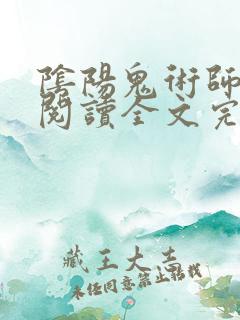 陰陽鬼術師
閱讀全文完
藏王大吉
未經同意禁止轉載